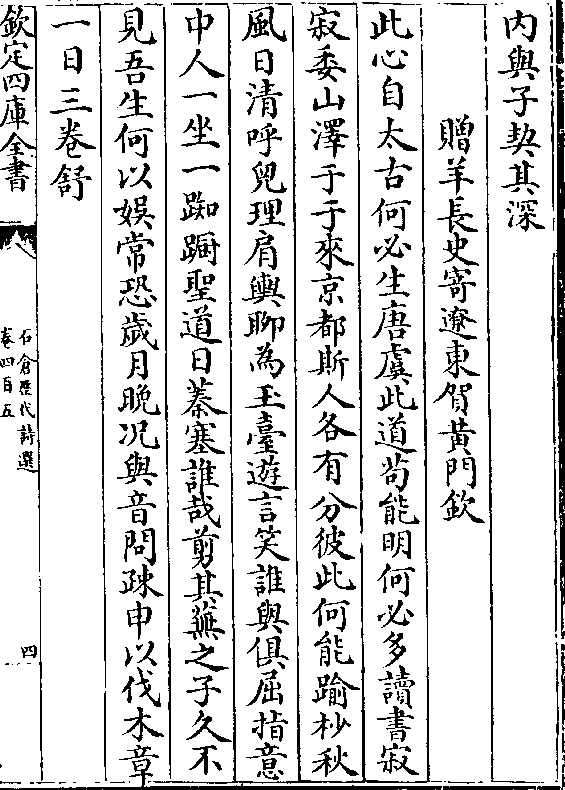 内與子契其深
贈羊長史寄遼東賀黃門欽
此心自太古何必生唐虞此道茍能明何必多讀書寂
寂委山澤于于來京都斯人各有分彼此何能踰杪秋
風日清呼兒理肩輿聊為玉臺遊言笑誰與俱屈指意
中人一坐一踟蹰聖道日蓁塞誰哉剪其蕪之子久不
見吾生何以娛常恐歲月晚况與音問疎申以伐木章
一日三卷舒
欽定四庫全書
石倉歷代詩選
卷四百五
四